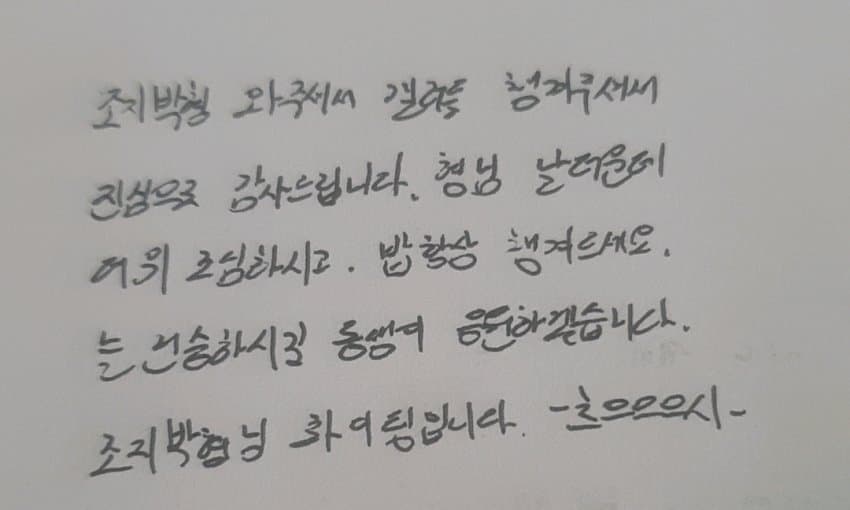 조지박형 와주셔서 챙겨주셔서
진심으로 감사드립니다. 형님 날더운데
더위 조심하시고. 밥 항상 챙겨드세요.
늘 건승하시길 동생이 응원하겠습니다.
조지박형님 화이팅입니다. -츠으으으시-